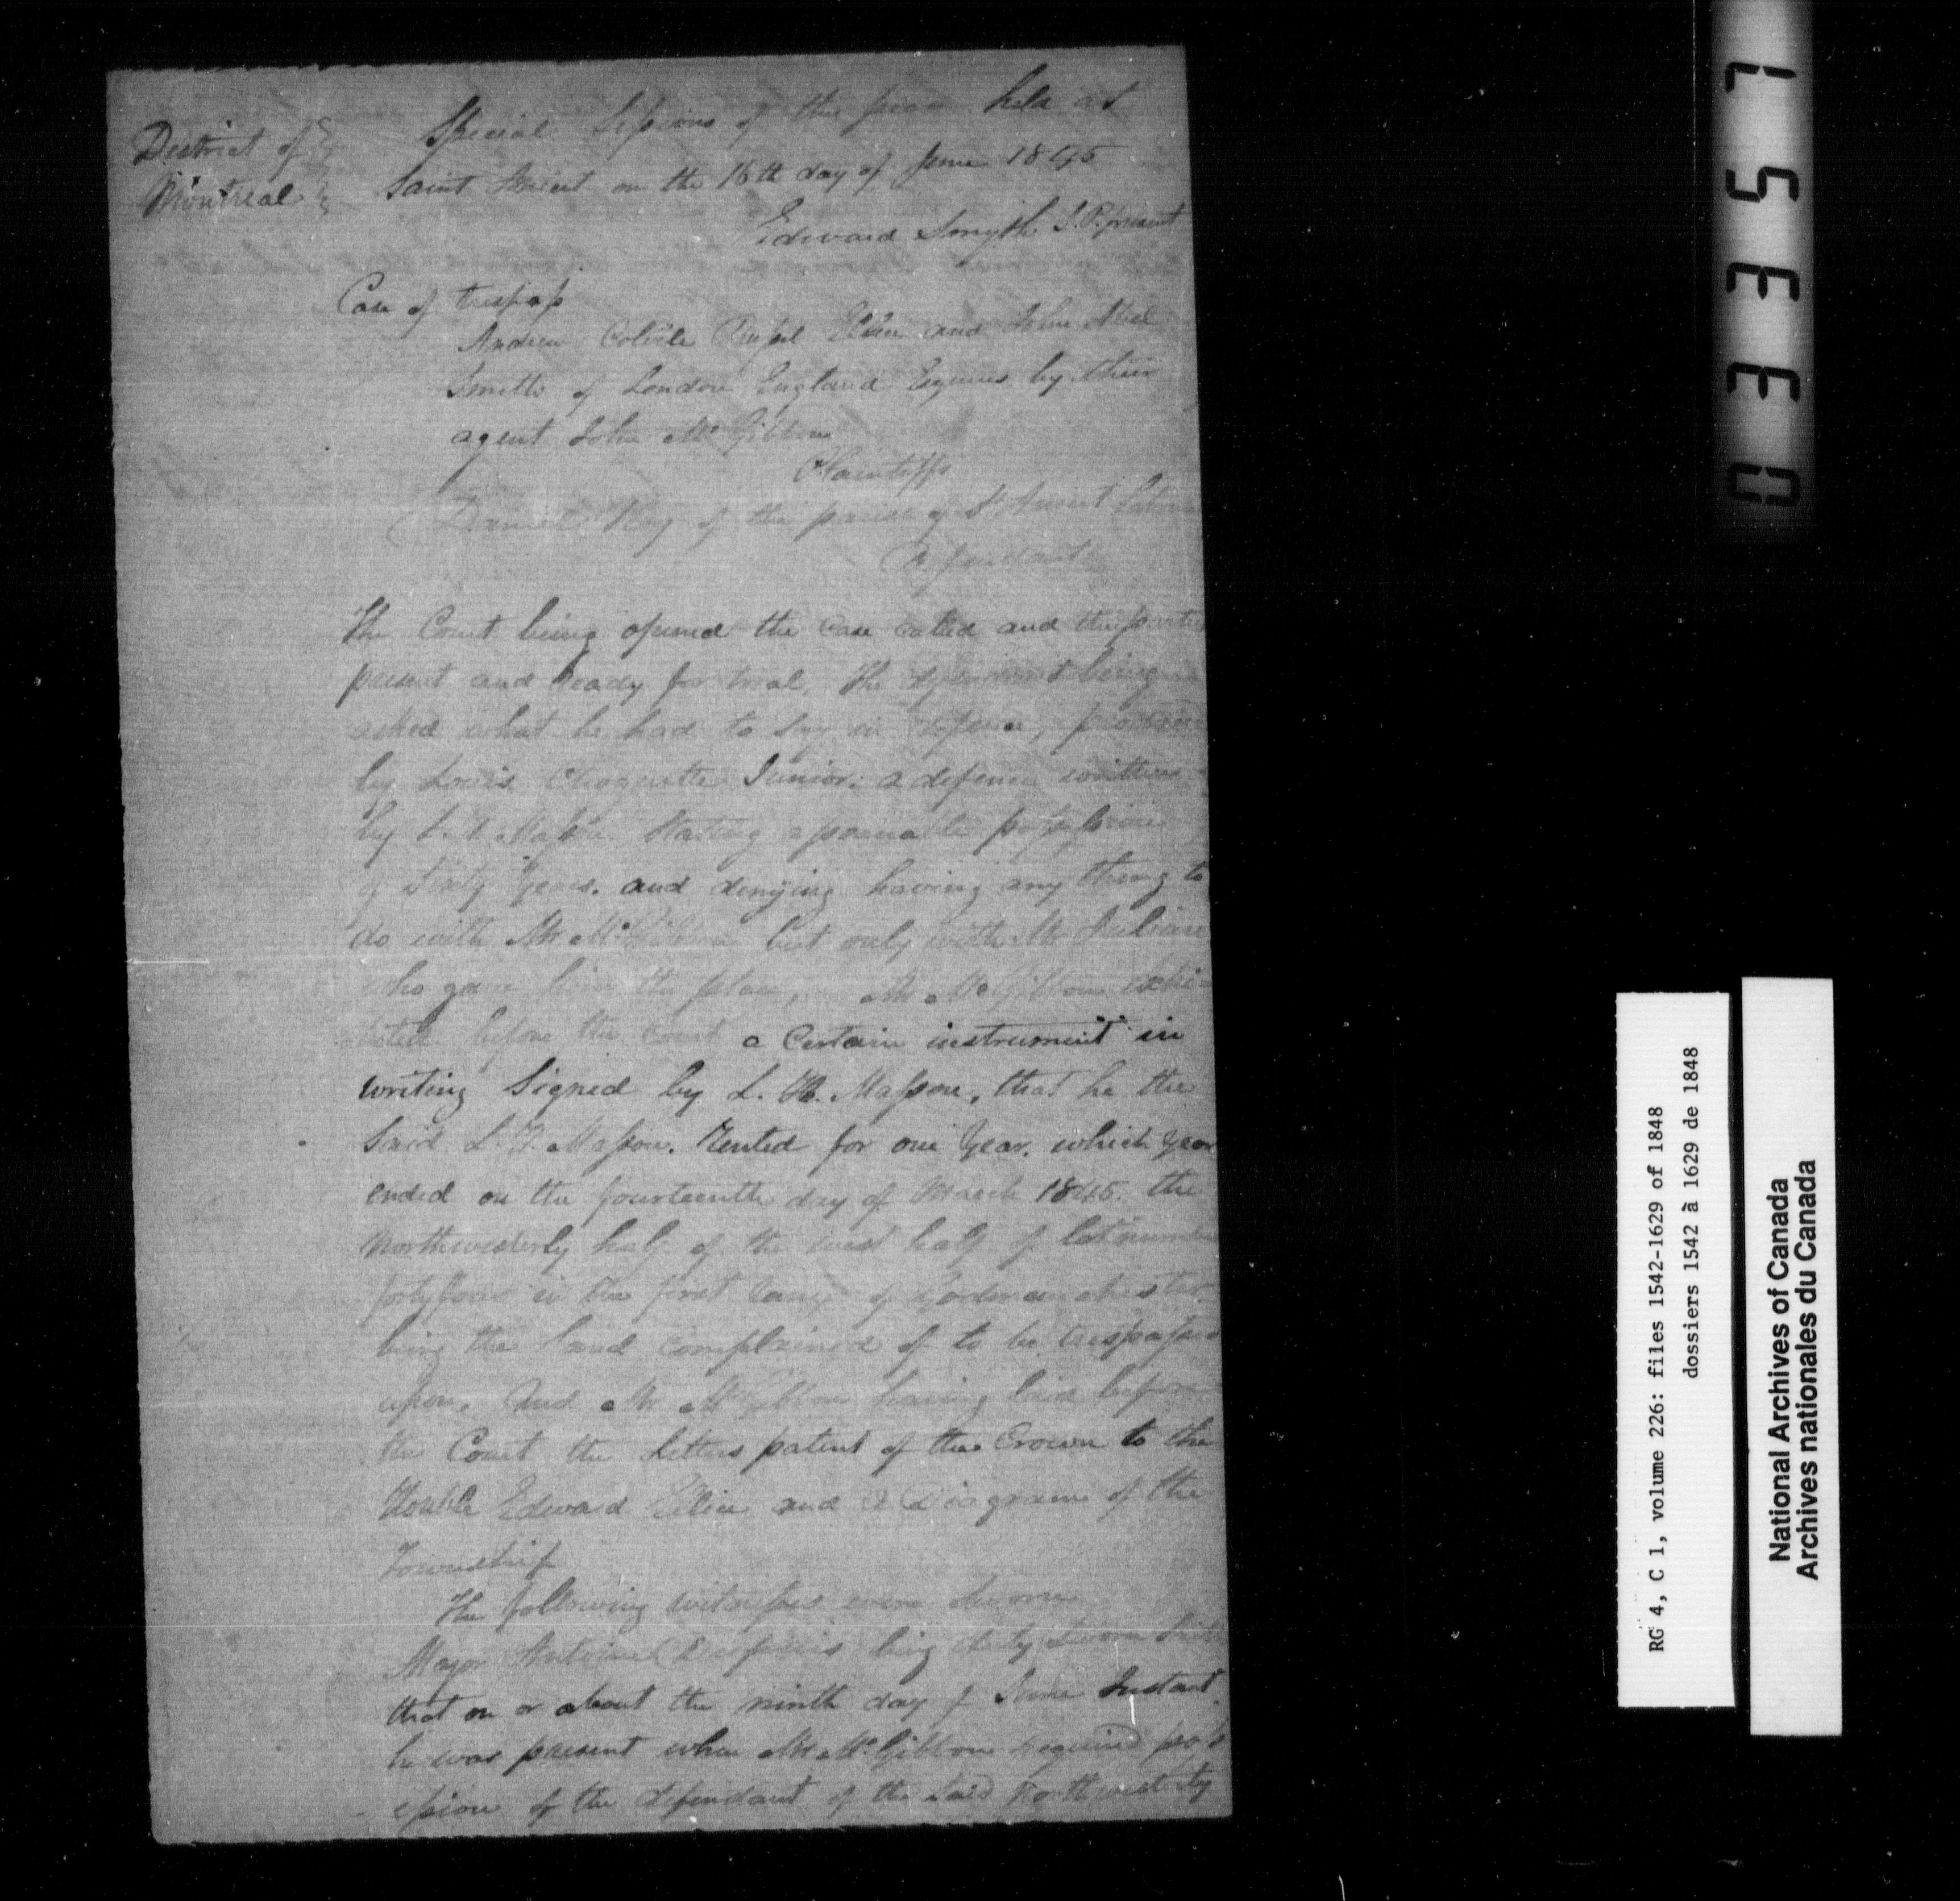 District of
Montreal
Special Sessions of the peace held at
Saint Anicet on the 16th day of June 1845
Edward Smyth J.P. present
Case of trespass
Andrew Colvile Russel Ellice and John Abel
Smith of London England Esquires by their
agent John McGibbon
Plaintiffs
Daniel of the parish of St Anicet
Defendant
The Court being opened the case called and the parties
present and ready for trial, The defendant being
asked what he had to say in defence,
by Louis Choquette Junior. a defence written
by L. H. Masson. Stating peaceable possession
of Sixty Years. and denying having any thing to
do with Mr McGibbon but only with Mr
who gave him the place, Mr McGibbon exhi-
bited before the Court a Certain instrument in
writing Signed by L. H. Masson, that he the
Said L. H. Masson. Rented for one Year. which year
ended on the fourteenth day of March 1845. the
Northwesterly half of the west half of lot number
forty four in the first range of Godmanchester
being the land complained of to be trespassed
upon. And Mr McGibbon having laid before
the Court the letters patent of the Crown to the
Honble Edward Ellice and a Diagram of the
Township
The following witnesses were Sworn
Major Antoine being duly Sworn
that on or about the ninth day of June Instant
he was present when Mr McGibbon required poss
ession of the defendant of the Said Northwesterly
03357
RG 4, C 1, volume 226: files 1542-1629 of 1848
dossiers 1542 à 1629 de 1848
National Archives of Canada
Archives nationales du Canada